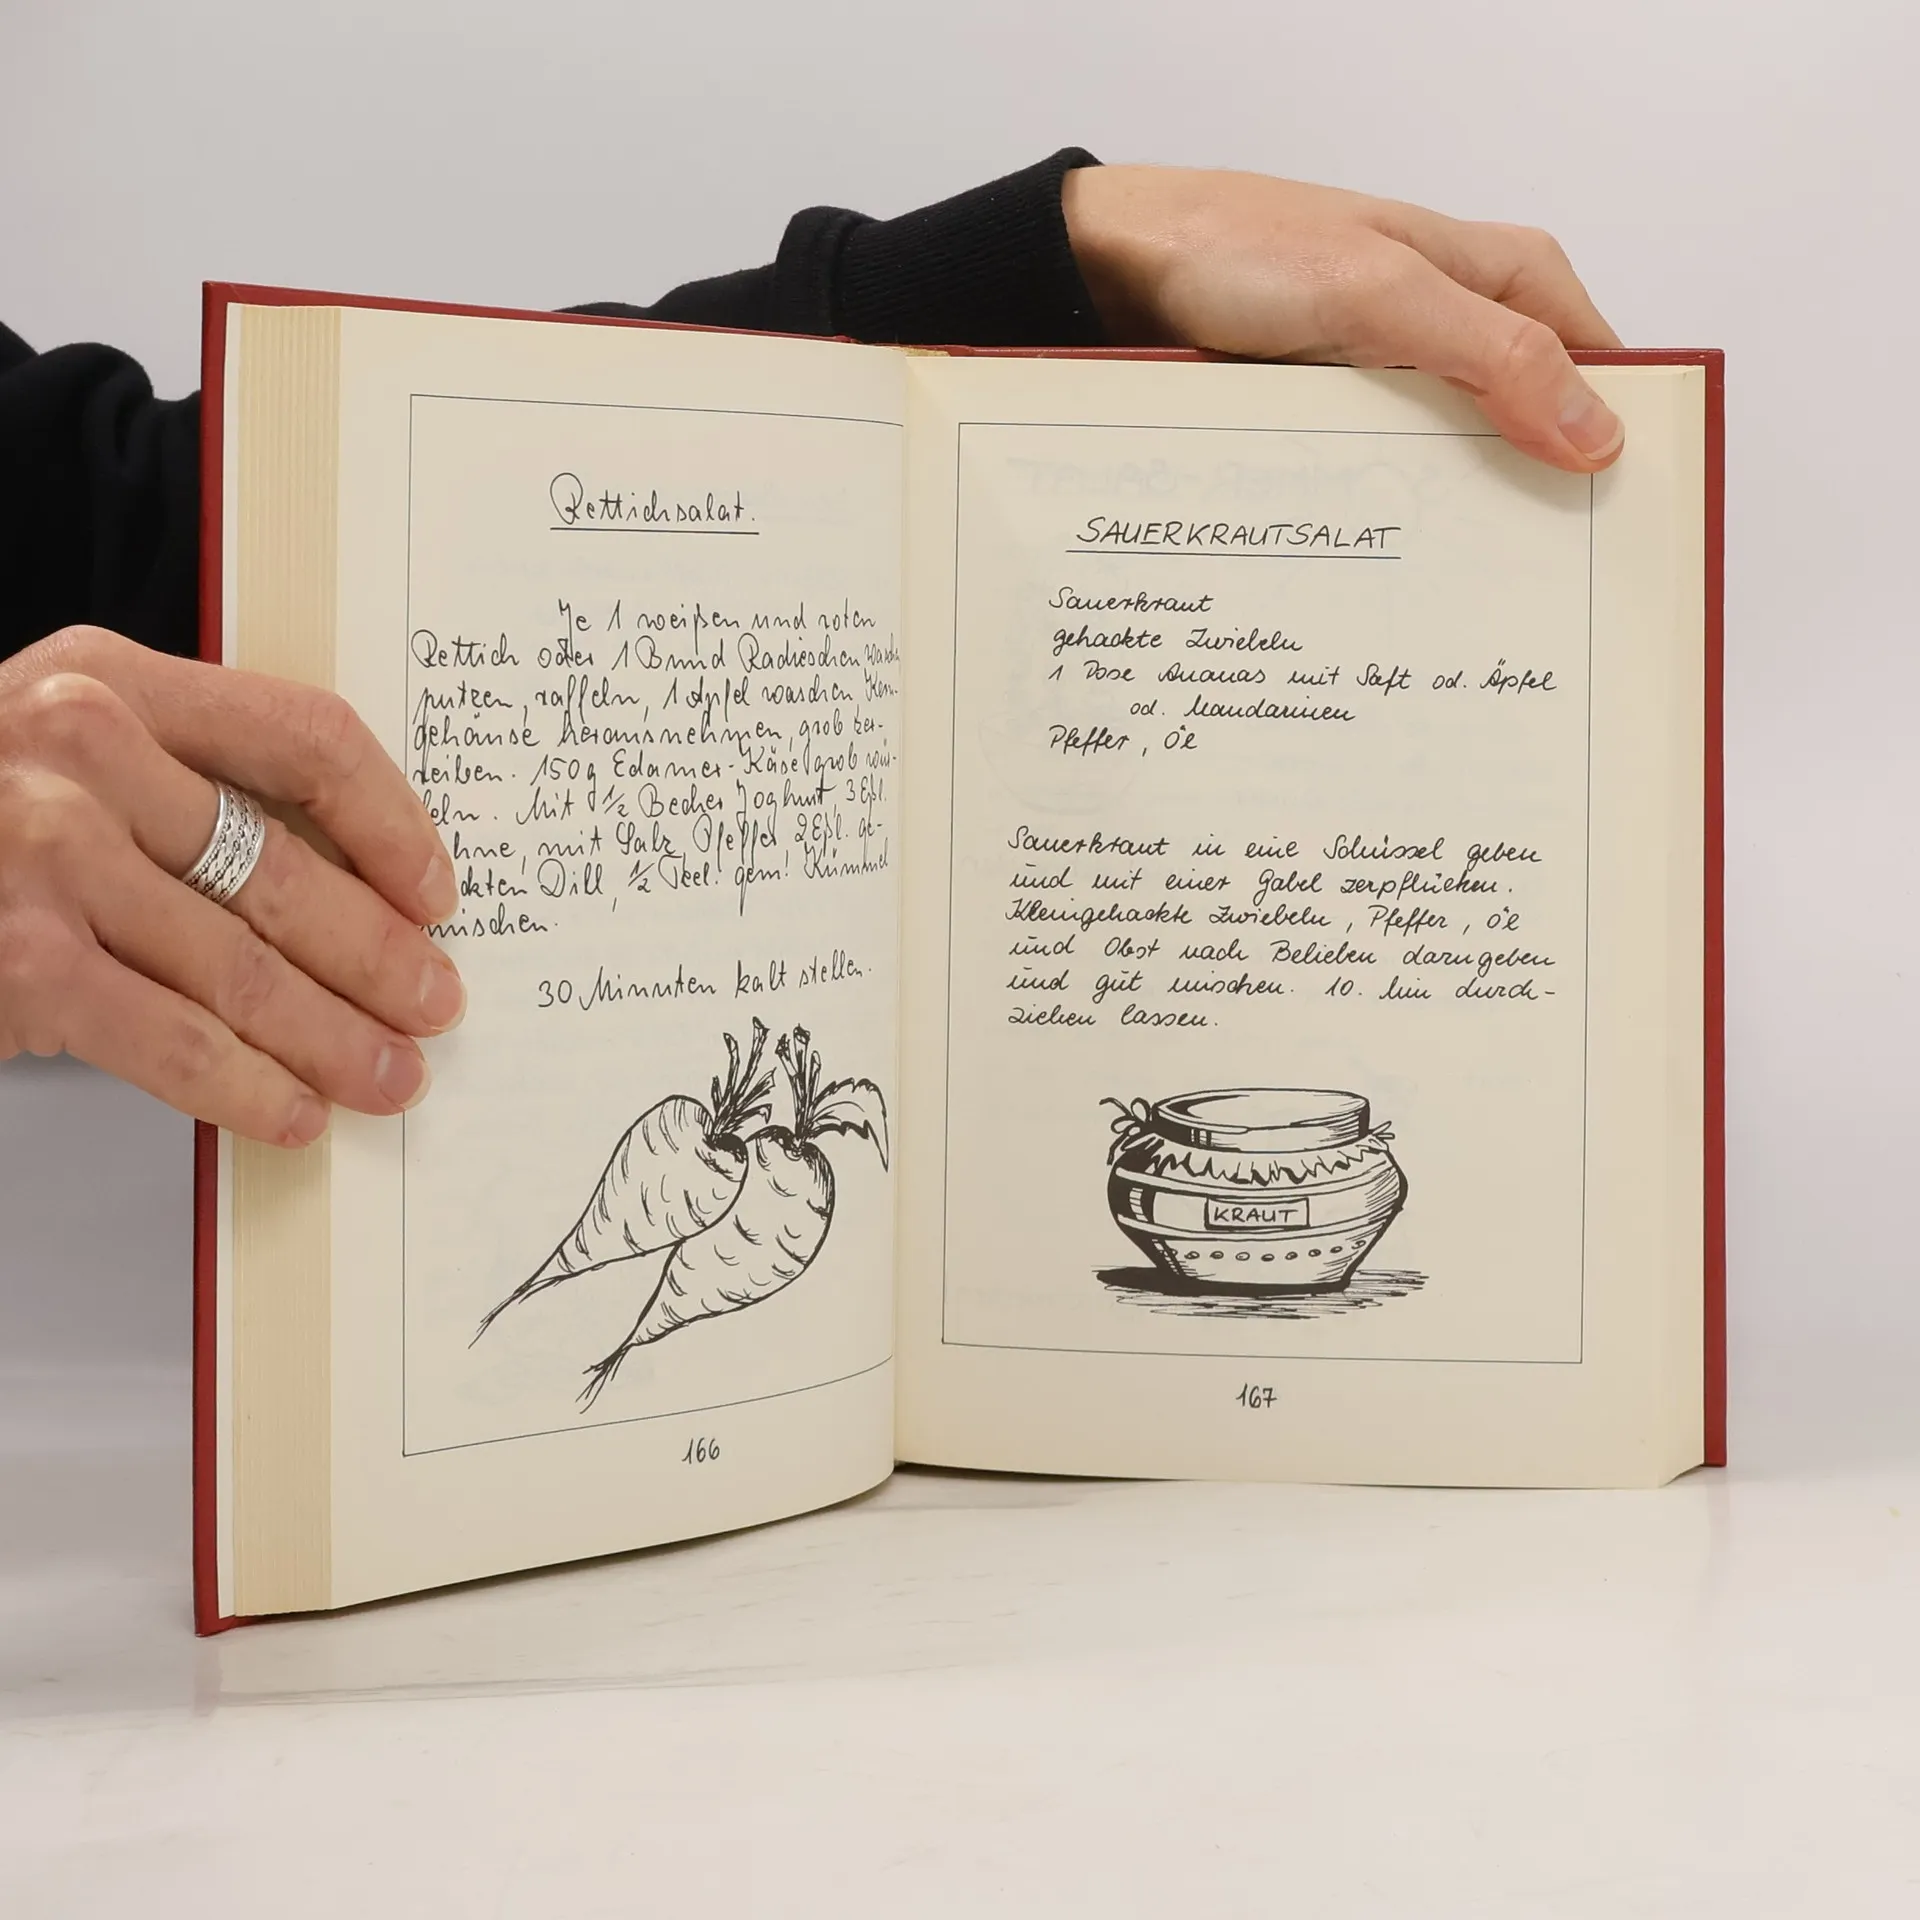 Rettichsalat.
Je 1 weißen und roten
Rettich oder 1 Bund Radieschen
putzen, raffeln, 1 Apfel waschen, Kern-
gehäuse herausnehmen, grob zer-
reiben. 150g Edamer-Käse grob wür-
feln. Mit 1/2 Becher Joghurt, 3 Eßl.
hne, mit Salz, Pfeffer, 2 Eßl. ge-
ckten Dill, 1/2 Teel. gem. Kümmel
mischen.
30 Minuten kalt stellen.
166
SAUERKRAUTSALAT
Sauerkraut
gehackte Zwiebeln
1 Dose Ananas mit Saft od. Äpfel
od. Mandarinen
Pfeffer, Öl
Sauerkraut in eine Schüssel geben
und mit einer Gabel zerpflücken.
Kleingehackte Zwiebeln, Pfeffer, Öl
und Obst nach Belieben dazugeben
und gut mischen. 10. Min durch-
ziehen lassen.
KRAUT
167